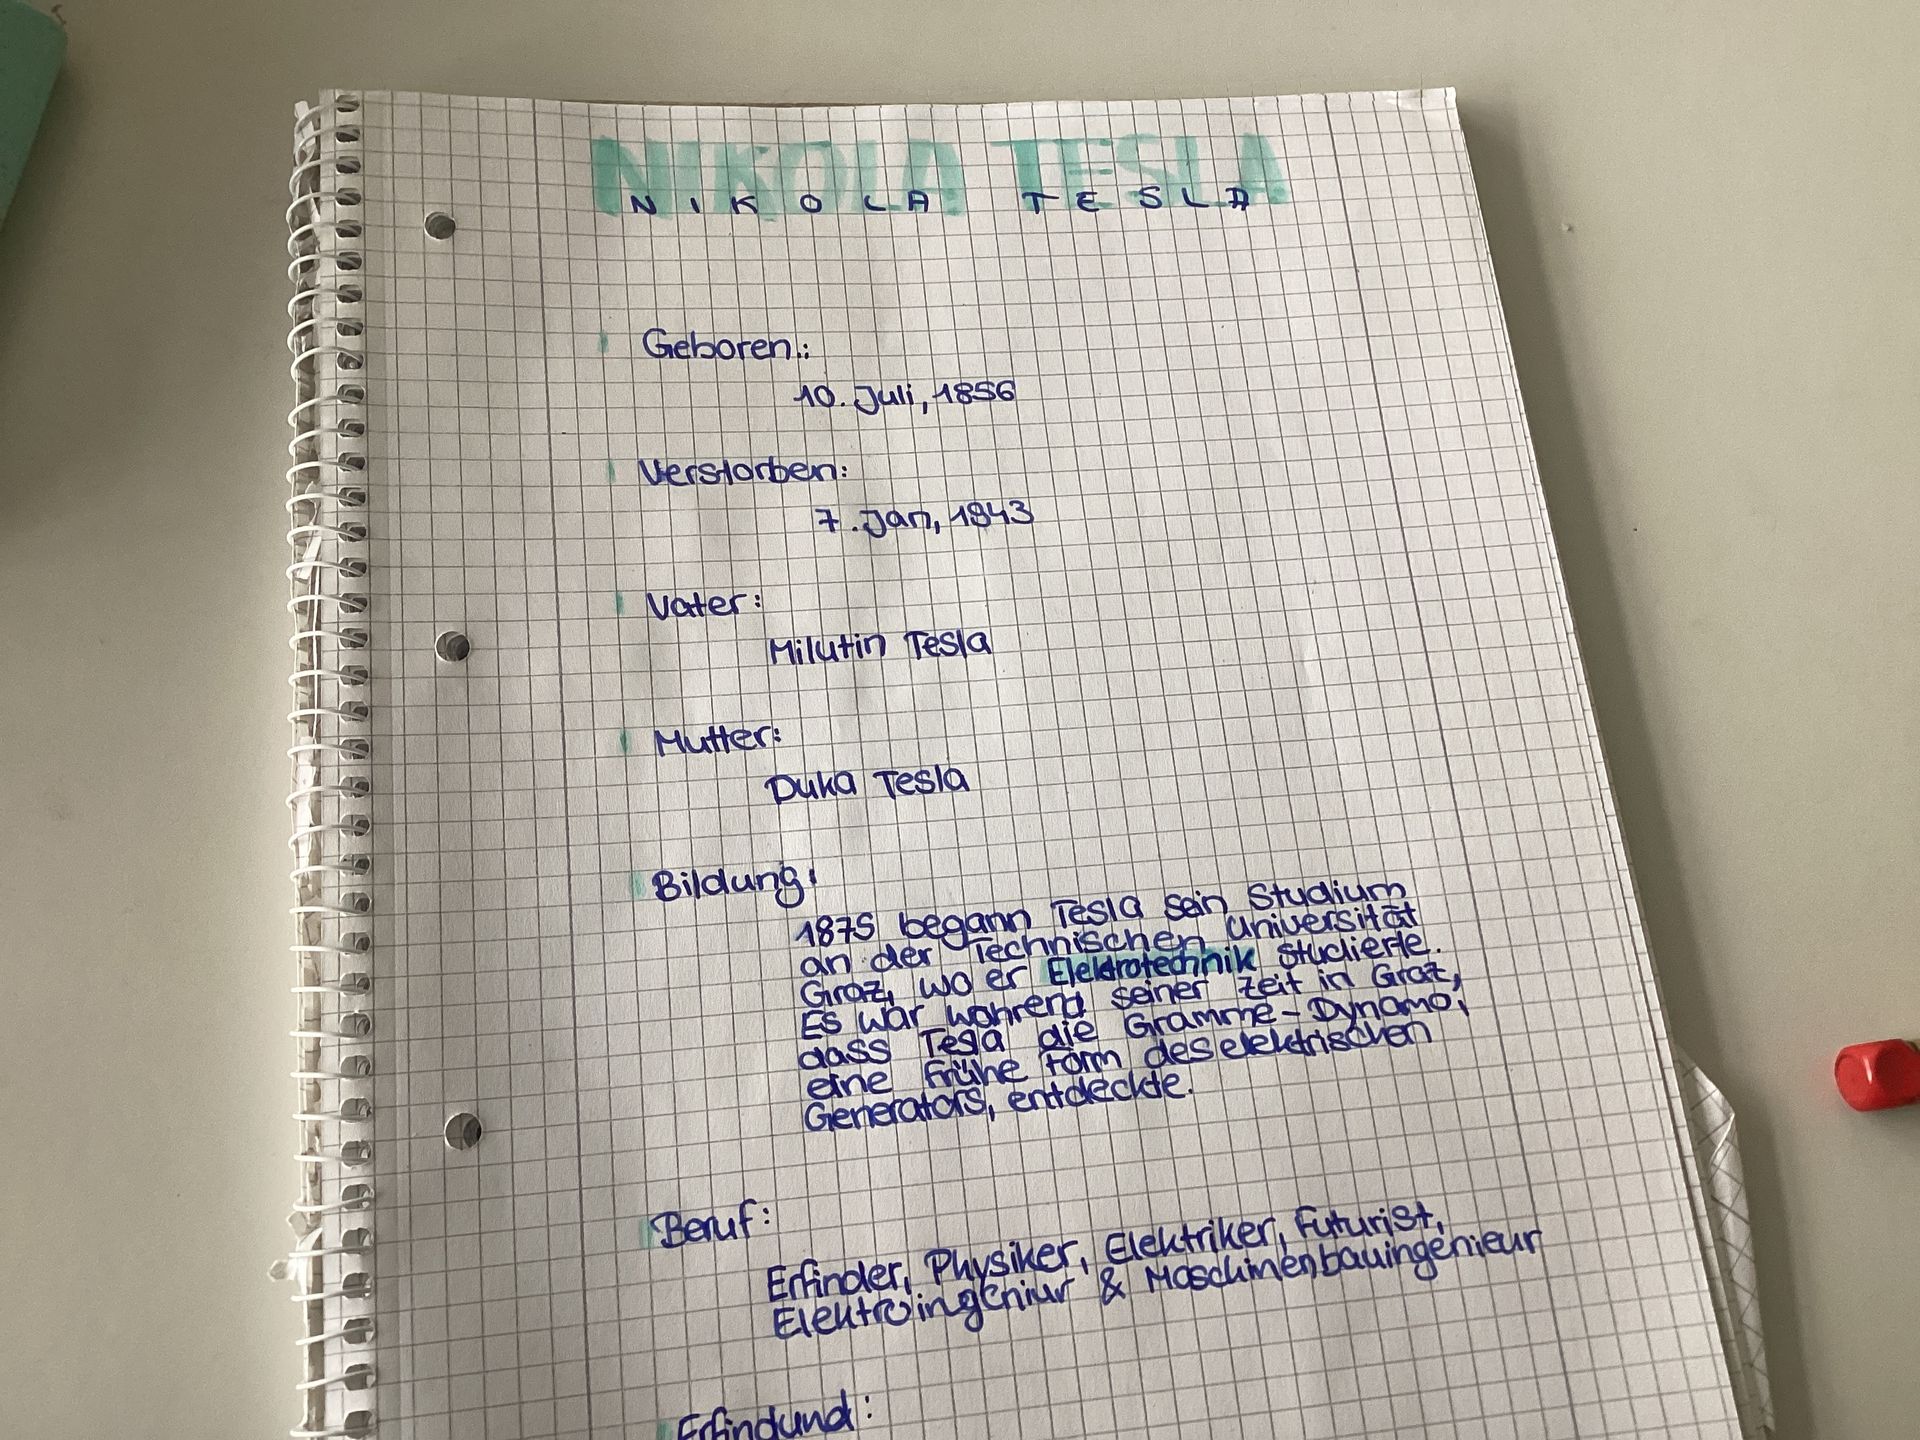 NIKOLA TESLA
NIKOLA TESLA
Geboren:
10. Juli, 1856
Verstorben:
7. Jan, 1943
Vater:
Milutin Tesla
Mutter:
Duka Tesla
Bildung:
1875 begann Tesla sein Studium
an der Technischen Universität
Graz, wo er Elektrotechnik studierte.
Es war während seiner Zeit in Graz,
dass Tesla die Gramme-Dynamo,
eine frühe Form des elektrischen
Generators, entdeckte.
Beruf:
Erfinder, Physiker, Elektriker, Futurist,
Elektroingeniur & Maschinenbauingenieur
Erfindund: